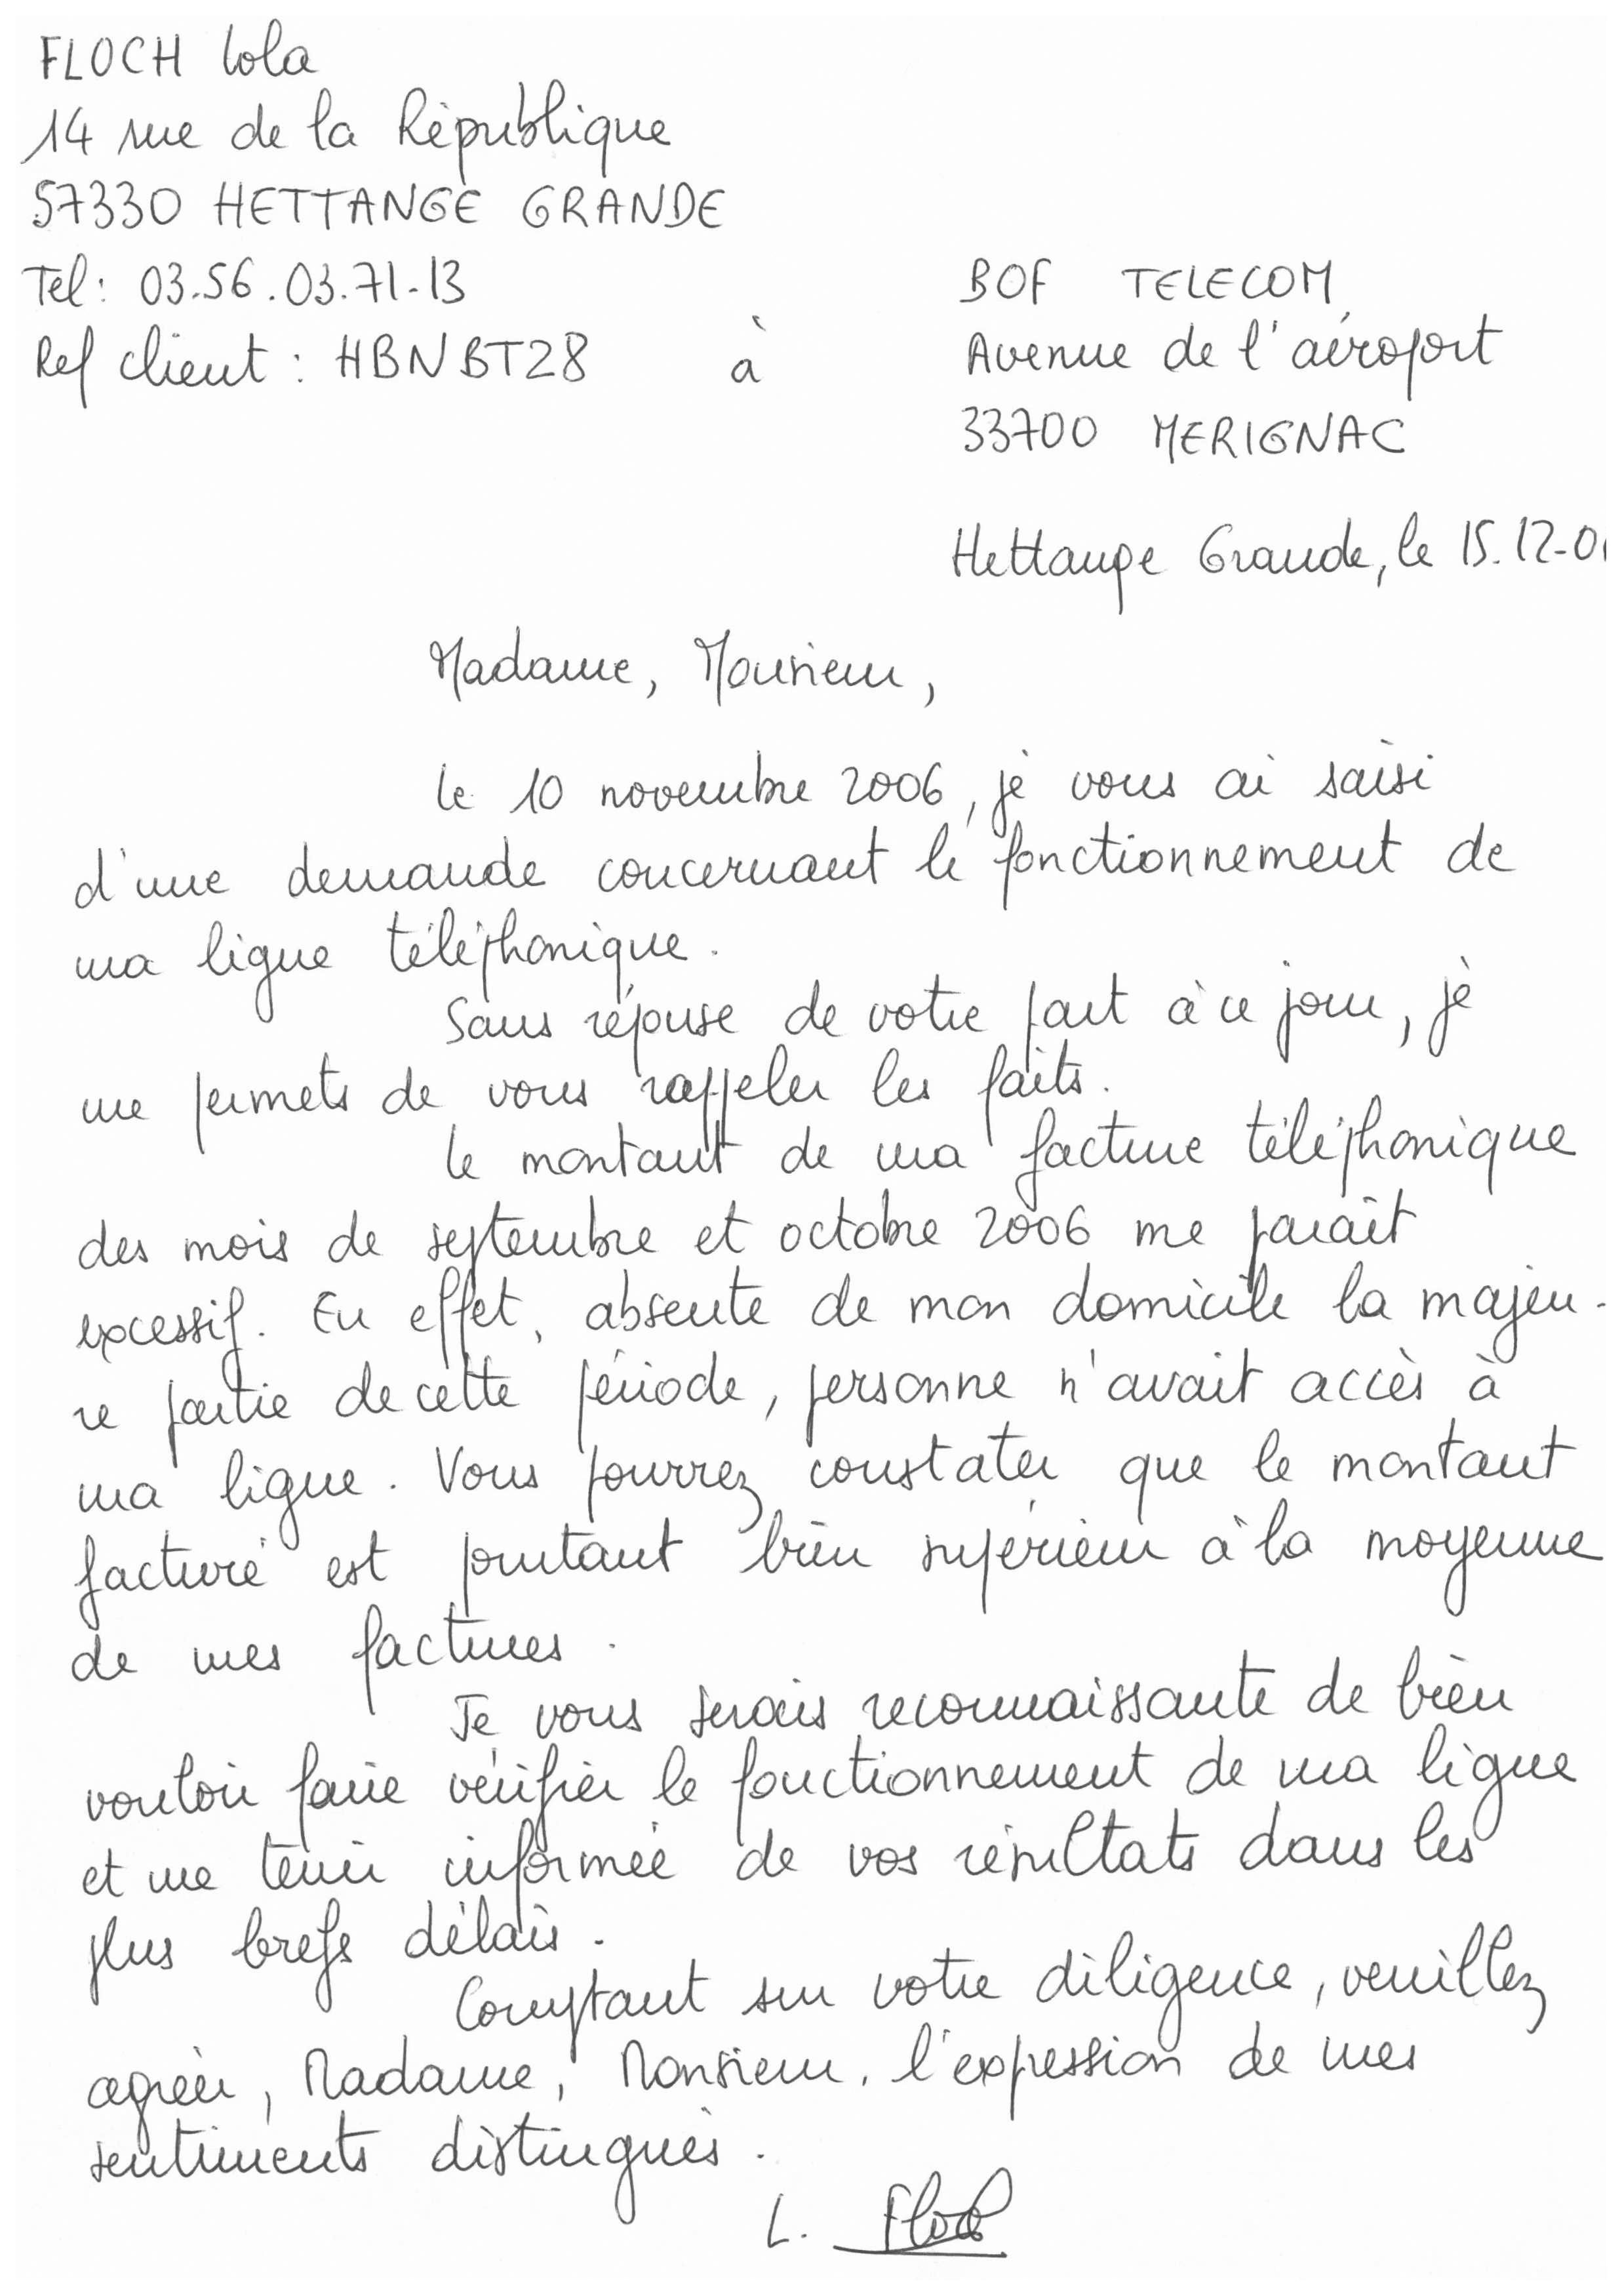 FLOCH Lola
14 rue de la République
57330 HETTANGE GRANDE
Tel: 03.56.03.71.13
Ref client : HBNBT28
à
BOF TELECOM
Avenue de l'aéroport
33700 MERIGNAC
Hettange Grande, le 15.12-0
Madame, Monsieur,
Le 10 novembre 2006, je vous ai saisi
d'une demande concernant le fonctionnement de
ma ligne téléphonique.
Sans réponse de votre part à ce jour, je
me permets de vous rappeler les faits.
Le montant de ma facture téléphonique
des mois de septembre et octobre 2006 me parait
excessif. En effet, absente de mon domicile la majeu-
re partie de cette période, personne n'avait accès à
ma ligne. Vous pourrez constater que le montant
facturé est pourtant bien supérieur à la moyenne
de mes factures.
Je vous serais reconnaissante de bien
vouloir faire vérifier le fonctionnement de ma ligne
et me tenir informée de vos résultats dans les
plus brefs délais.
Comptant sur votre diligence, veuillez
agréer, Madame, Monsieur, l'expression de mes
sentiments distingués.
L. Floch